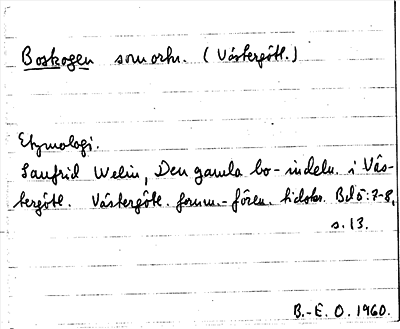 Boskogen som ortn. (Västergötl.)
Etymologi.
Sanfrid Welin, Den gamla bo-indeln. i Väs-
tergötl. Västergötl. fornm.-fören. tidskr. Bd 5:7-8,
s. 13.
B.-E. O. 1960.